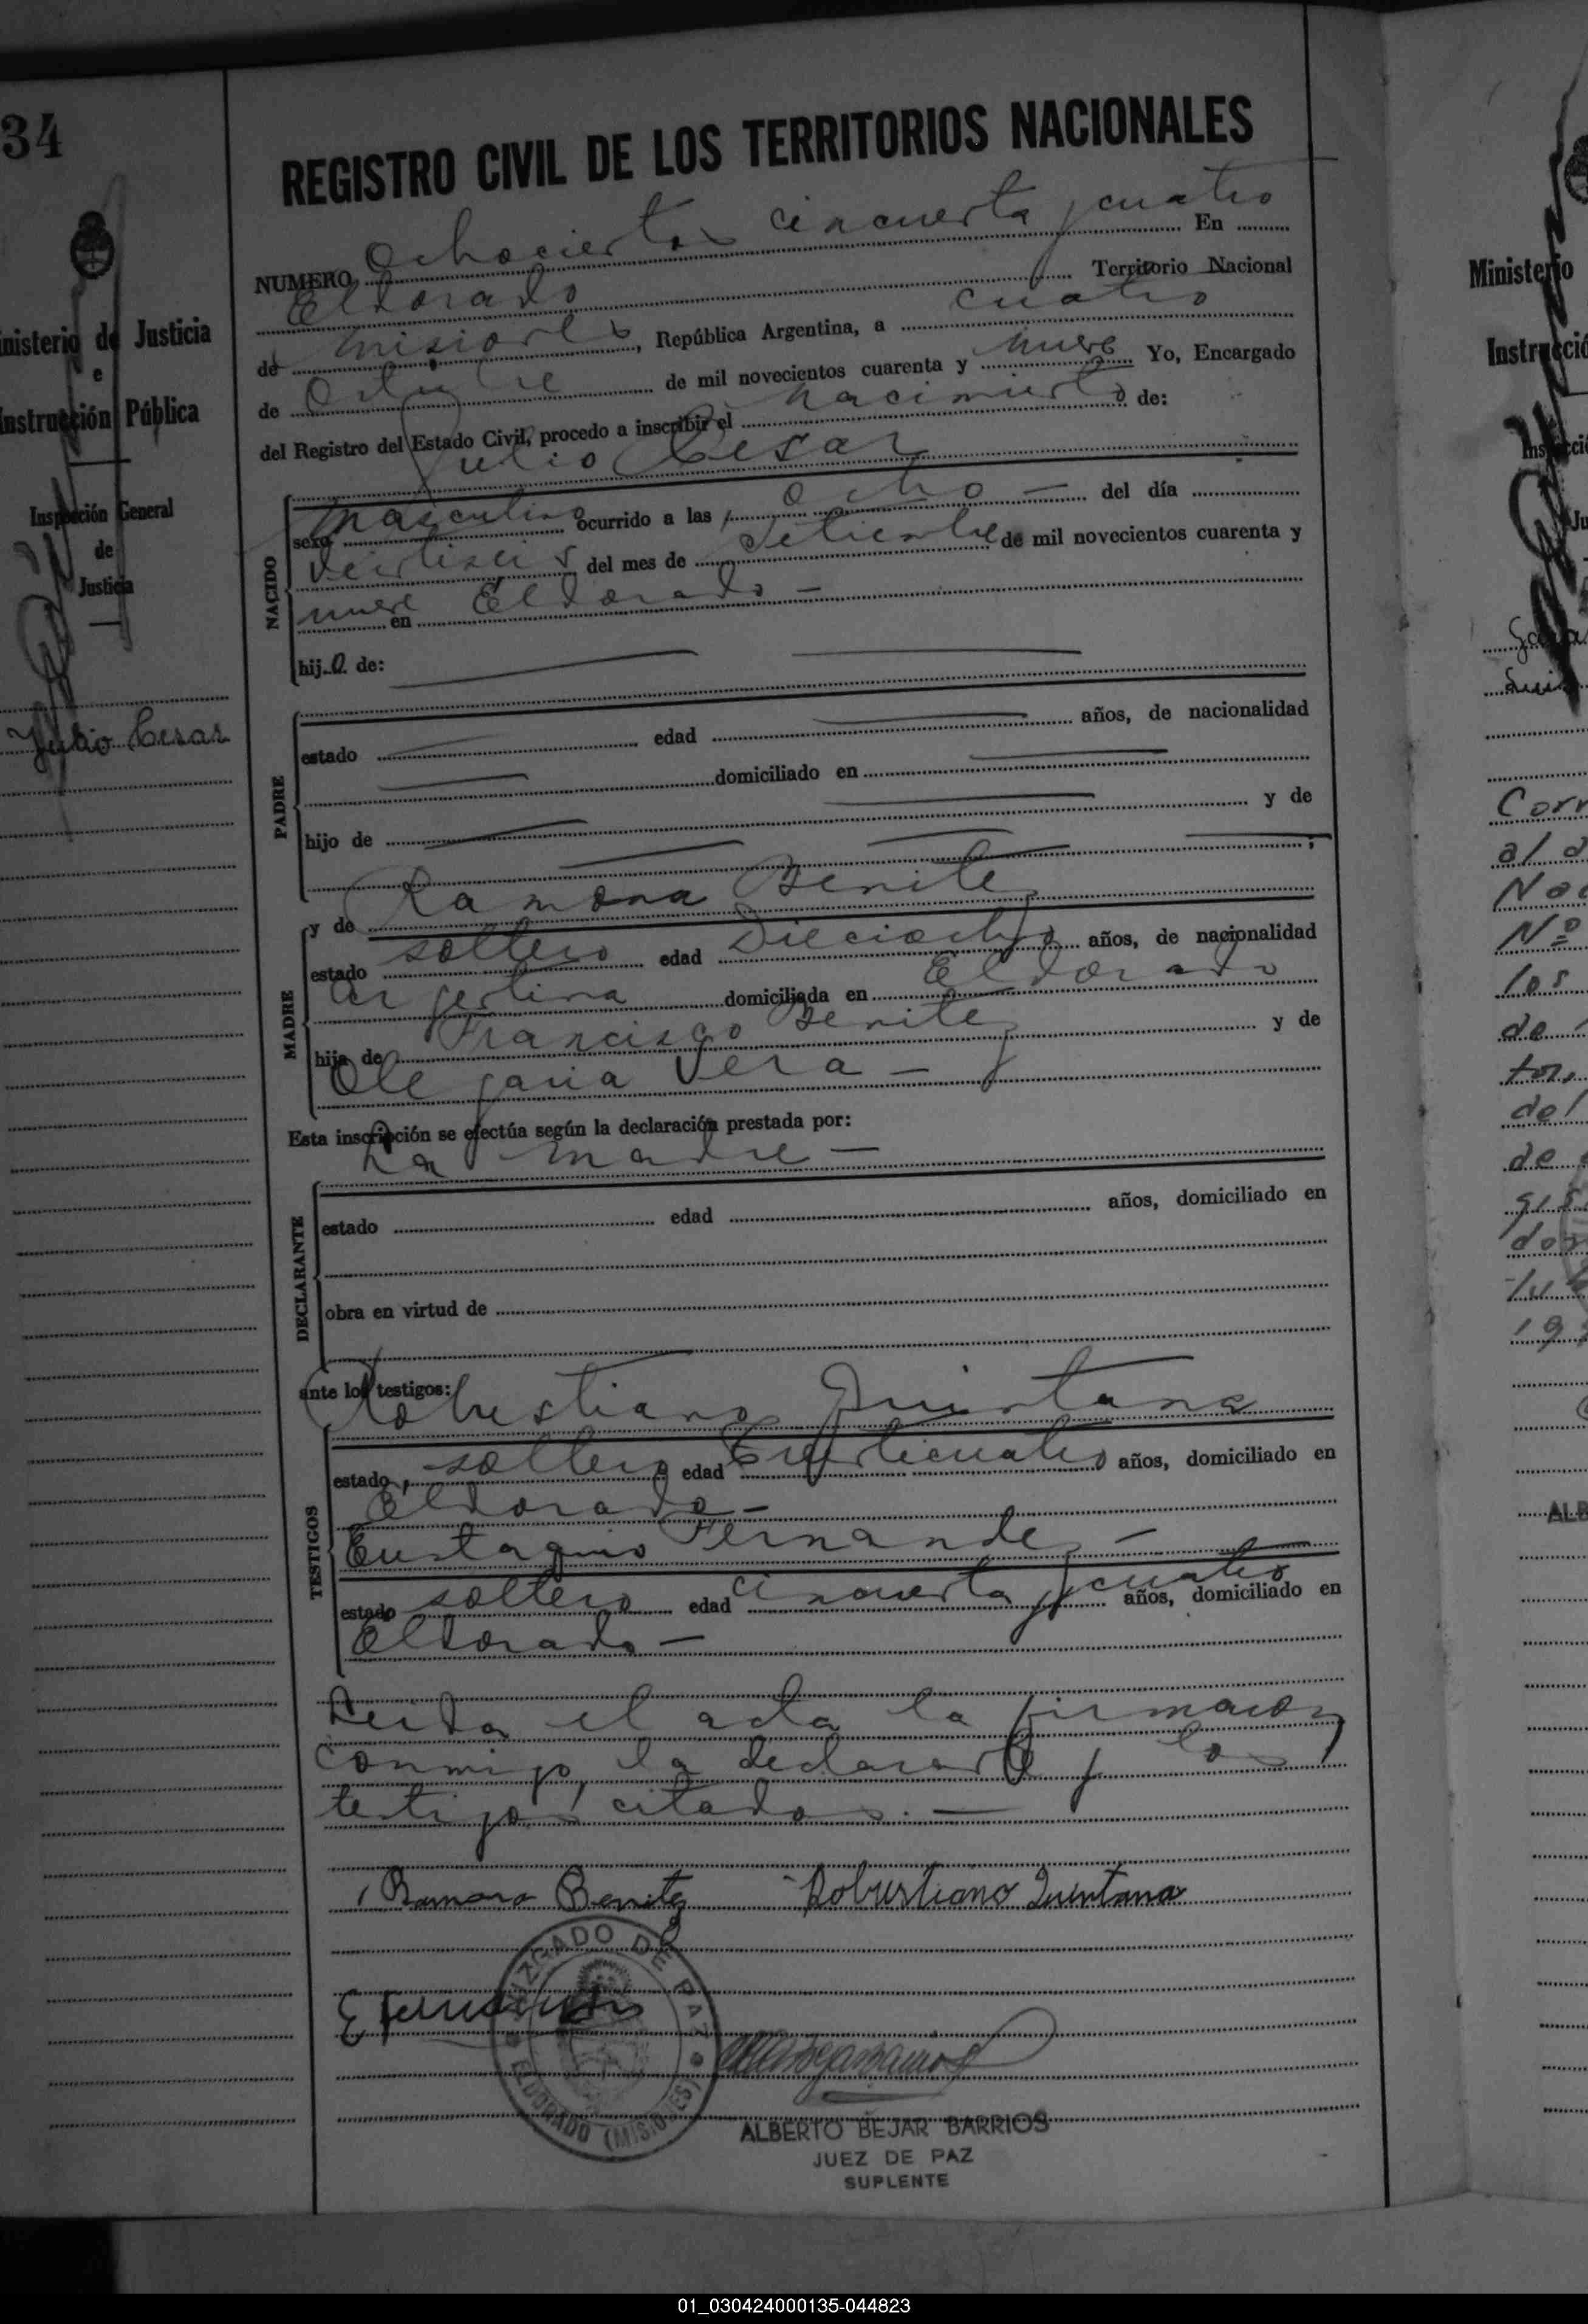 34
Ministerio de Justicia
e
Instrucción Pública
Inspección General
de
Justicia
Julio Cesar
REGISTRO CIVIL DE LOS TERRITORIOS NACIONALES
NUMERO Ochocientos cincuenta y cuatro En
Eldorado Territorio Nacional
de Misiones, República Argentina, a cuatro
de Octubre de mil novecientos cuarenta y nueve Yo, Encargado
del Registro del Estado Civil, procedo a inscribir el nacimiento de:
Julio Cesar
NACIDO
sexo masculino ocurrido a las ocho — del día
veintiseis del mes de Setiembre de mil novecientos cuarenta y
nueve en Eldorado —
hijo de:
PADRE
estado edad años, de nacionalidad
domiciliado en
hijo de y de
y de Ramona Benitez
MADRE
estado soltero edad Dieciocho años, de nacionalidad
Argentina domiciliada en Eldorado
hija de Francisco Benitez y de
Olegaria Vera —
Esta inscripción se efectúa según la declaración prestada por:
La madre —
DECLARANTE
estado edad años, domiciliado en
obra en virtud de
ante los testigos: Robustiano Quintana
TESTIGOS
estado soltero edad años, domiciliado en
Eldorado —
Eustaquio Fernandez —
estado soltero edad cincuenta y cuatro años, domiciliado en
Eldorado —
Leida el acta la firmaron
conmigo, la declarante y los
testigos citados. —
Ramona Benitez Robustiano Quintana
JUZGADO DE PAZ
ELDORADO (MISIONES)
ALBERTO BEJAR BARRIOS
JUEZ DE PAZ
SUPLENTE
Ministerio
Instrucció
Corr
al
Nac
Nº
los
de
del
de
ALB
01_030424000135-044823